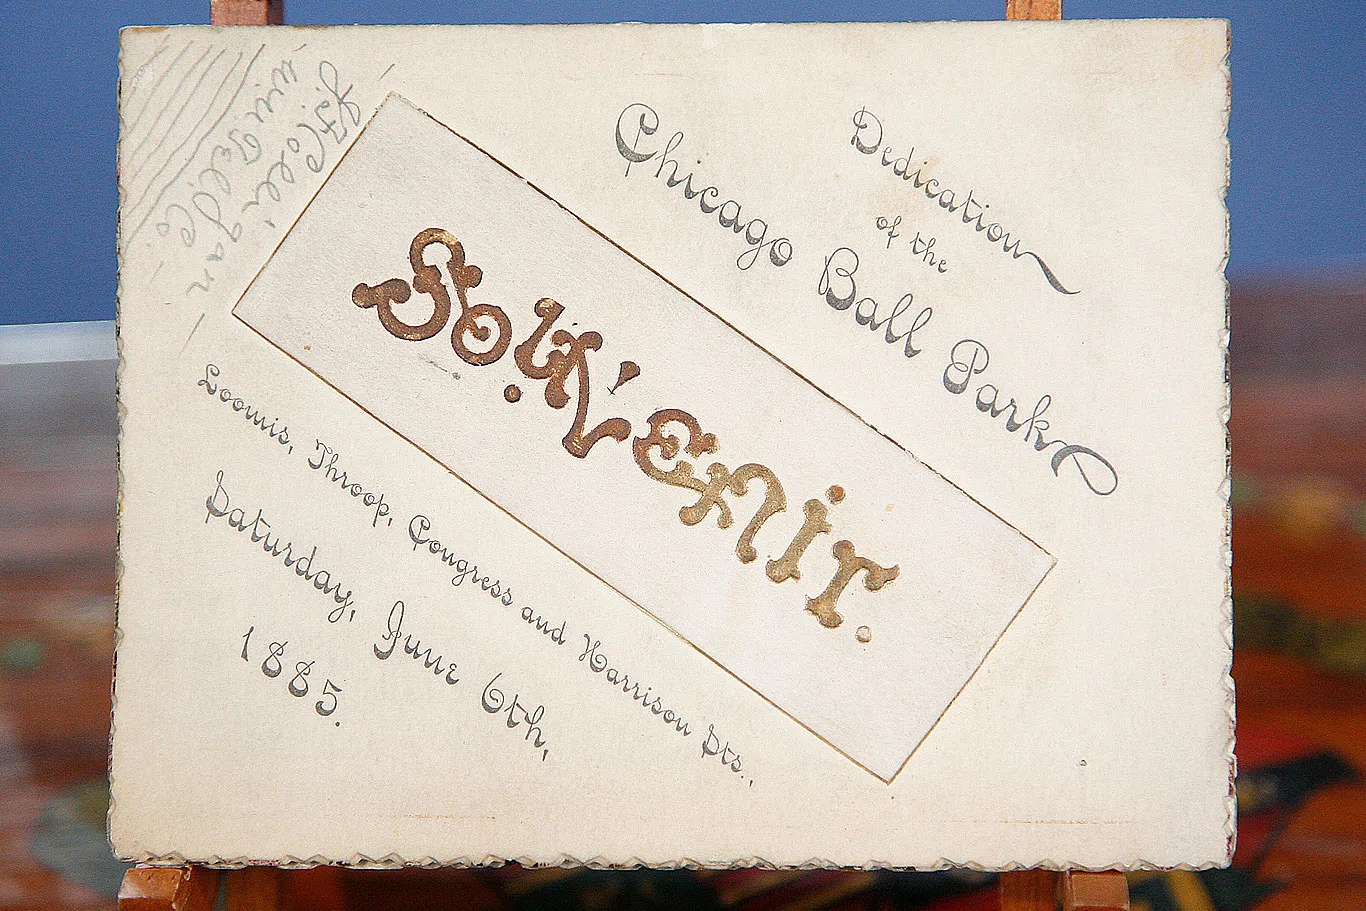 Dedication
of the
Chicago Ball Park
Souvenir.
Loomis, Throop, Congress and Harrison Sts.,
Saturday, June 6th,
1885.